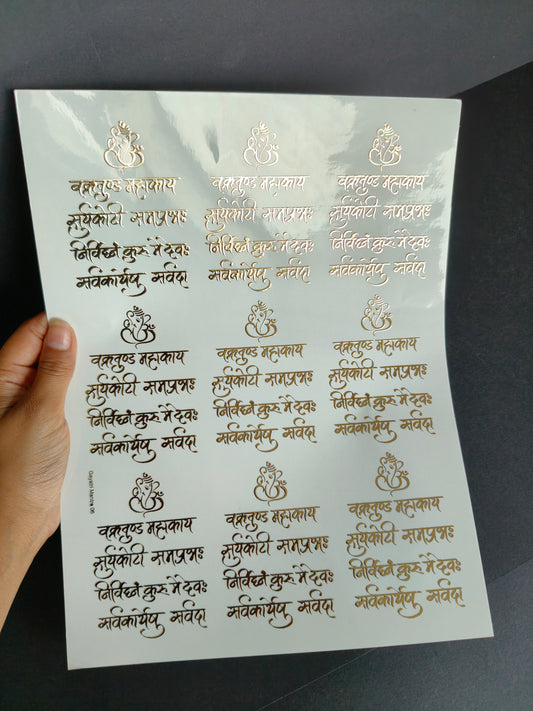 वक्रतुण्ड महाकाय
सूर्यकोटी समप्रभः
निर्विघ्नं कुरु मे देवः
सर्वकार्येषु सर्वदा
वक्रतुण्ड महाकाय
सूर्यकोटी समप्रभः
निर्विघ्नं कुरु मे देवः
सर्वकार्येषु सर्वदा
वक्रतुण्ड महाकाय
सूर्यकोटी समप्रभः
निर्विघ्नं कुरु मे देवः
सर्वकार्येषु सर्वदा
वक्रतुण्ड महाकाय
सूर्यकोटी समप्रभः
निर्विघ्नं कुरु मे देवः
सर्वकार्येषु सर्वदा
वक्रतुण्ड महाकाय
सूर्यकोटी समप्रभः
निर्विघ्नं कुरु मे देवः
सर्वकार्येषु सर्वदा
वक्रतुण्ड महाकाय
सूर्यकोटी समप्रभः
निर्विघ्नं कुरु मे देवः
सर्वकार्येषु सर्वदा
वक्रतुण्ड महाकाय
सूर्यकोटी समप्रभः
निर्विघ्नं कुरु मे देवः
सर्वकार्येषु सर्वदा
वक्रतुण्ड महाकाय
सूर्यकोटी समप्रभः
निर्विघ्नं कुरु मे देवः
सर्वकार्येषु सर्वदा
वक्रतुण्ड महाकाय
सूर्यकोटी समप्रभः
निर्विघ्नं कुरु मे देवः
सर्वकार्येषु सर्वदा
Gayatri Mantra 06